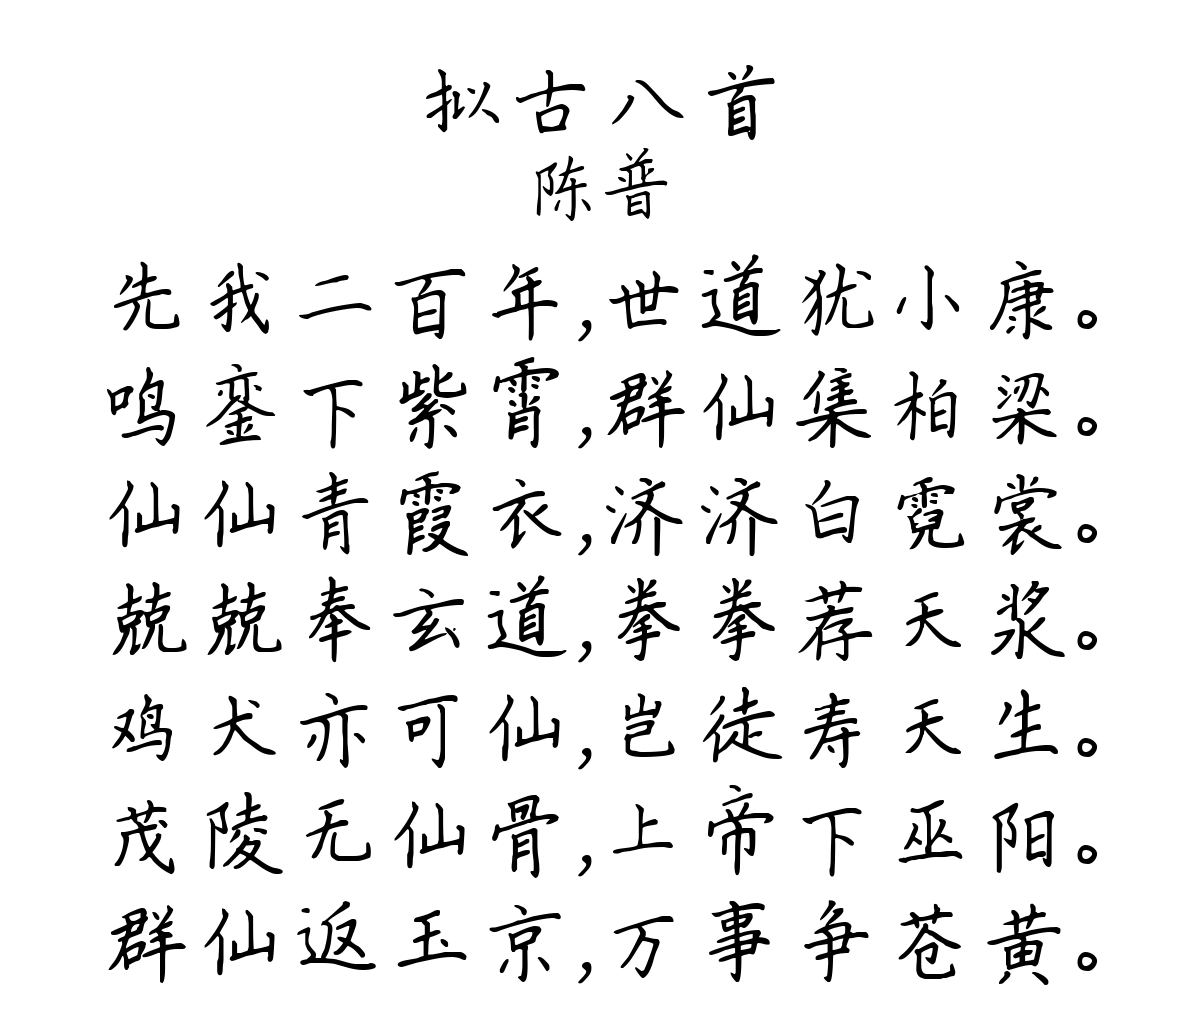 拟古八首
陈普
先我二百年,世道犹小康。
鸣銮下紫霄,群仙集柏梁。
仙仙青霞衣,济济白霓裳。
兢兢奉玄道,拳拳荐天浆。
鸡犬亦可仙,岂徒寿天生。
茂陵无仙骨,上帝下巫阳。
群仙返玉京,万事争苍黄。